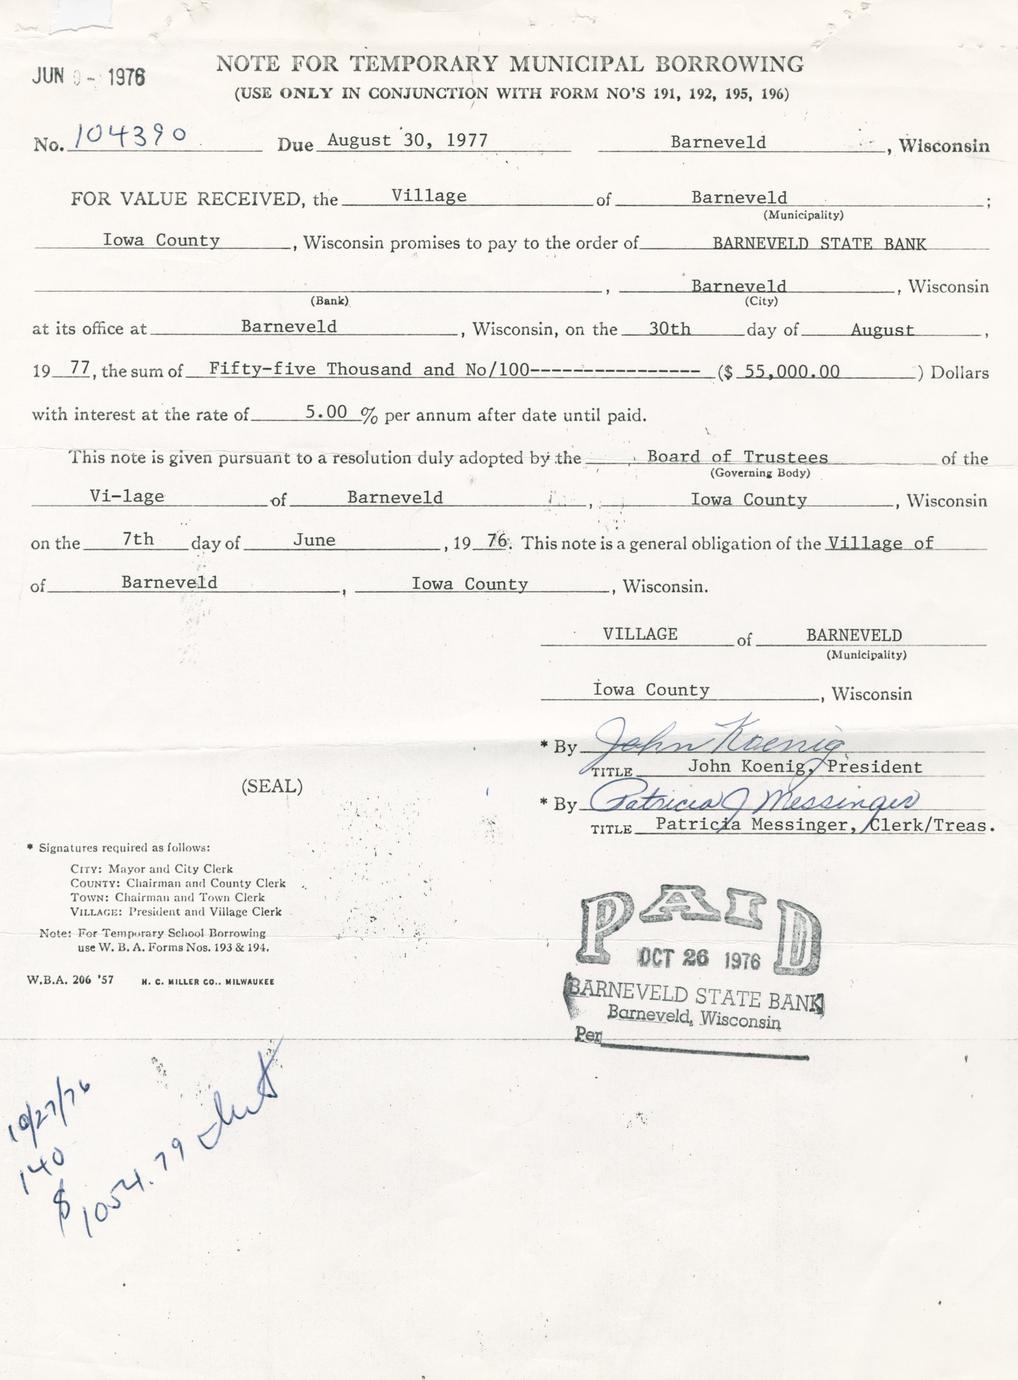 NOTE FOR TEMPORARY MUNICIPAL BORROWING
JUN 1976
(USE ONLY IN CONJUNCTION WITH FORM NO'S 191, 192, 195, 196)
No. 104390 Due August 30, 1977 Barneveld, Wisconsin
FOR VALUE RECEIVED, the Village of Barneveld ;
(Municipality)
Iowa County, Wisconsin promises to pay to the order of BARNEVELD STATE BANK
, Barneveld, Wisconsin
(Bank) (City)
at its office at Barneveld, Wisconsin, on the 30th day of August,
19 77, the sum of Fifty-five Thousand and No/100---------------- ($ 55,000.00 ) Dollars
with interest at the rate of 5.00 % per annum after date until paid.
This note is given pursuant to a resolution duly adopted by the Board of Trustees of the
(Governing Body)
Vi-lage of Barneveld, Iowa County, Wisconsin
on the 7th day of June, 19 76. This note is a general obligation of the Village of
of Barneveld, Iowa County, Wisconsin.
VILLAGE of BARNEVELD
(Municipality)
Iowa County, Wisconsin
* By John Koenig
TITLE John Koenig, President
(SEAL)
* By Patricia J Messinger
TITLE Patricia Messinger, Clerk/Treas.
* Signatures required as follows:
CITY: Mayor and City Clerk
COUNTY: Chairman and County Clerk
TOWN: Chairman and Town Clerk
VILLAGE: President and Village Clerk
Note: For Temporary School Borrowing
use W. B. A. Forms Nos. 193 & 194.
W.B.A. 206 '57 H. C. MILLER CO., MILWAUKEE
PAID
OCT 26 1976
BARNEVELD STATE BANK
Barneveld, Wisconsin
Per
10/27/76
140
$1054.79